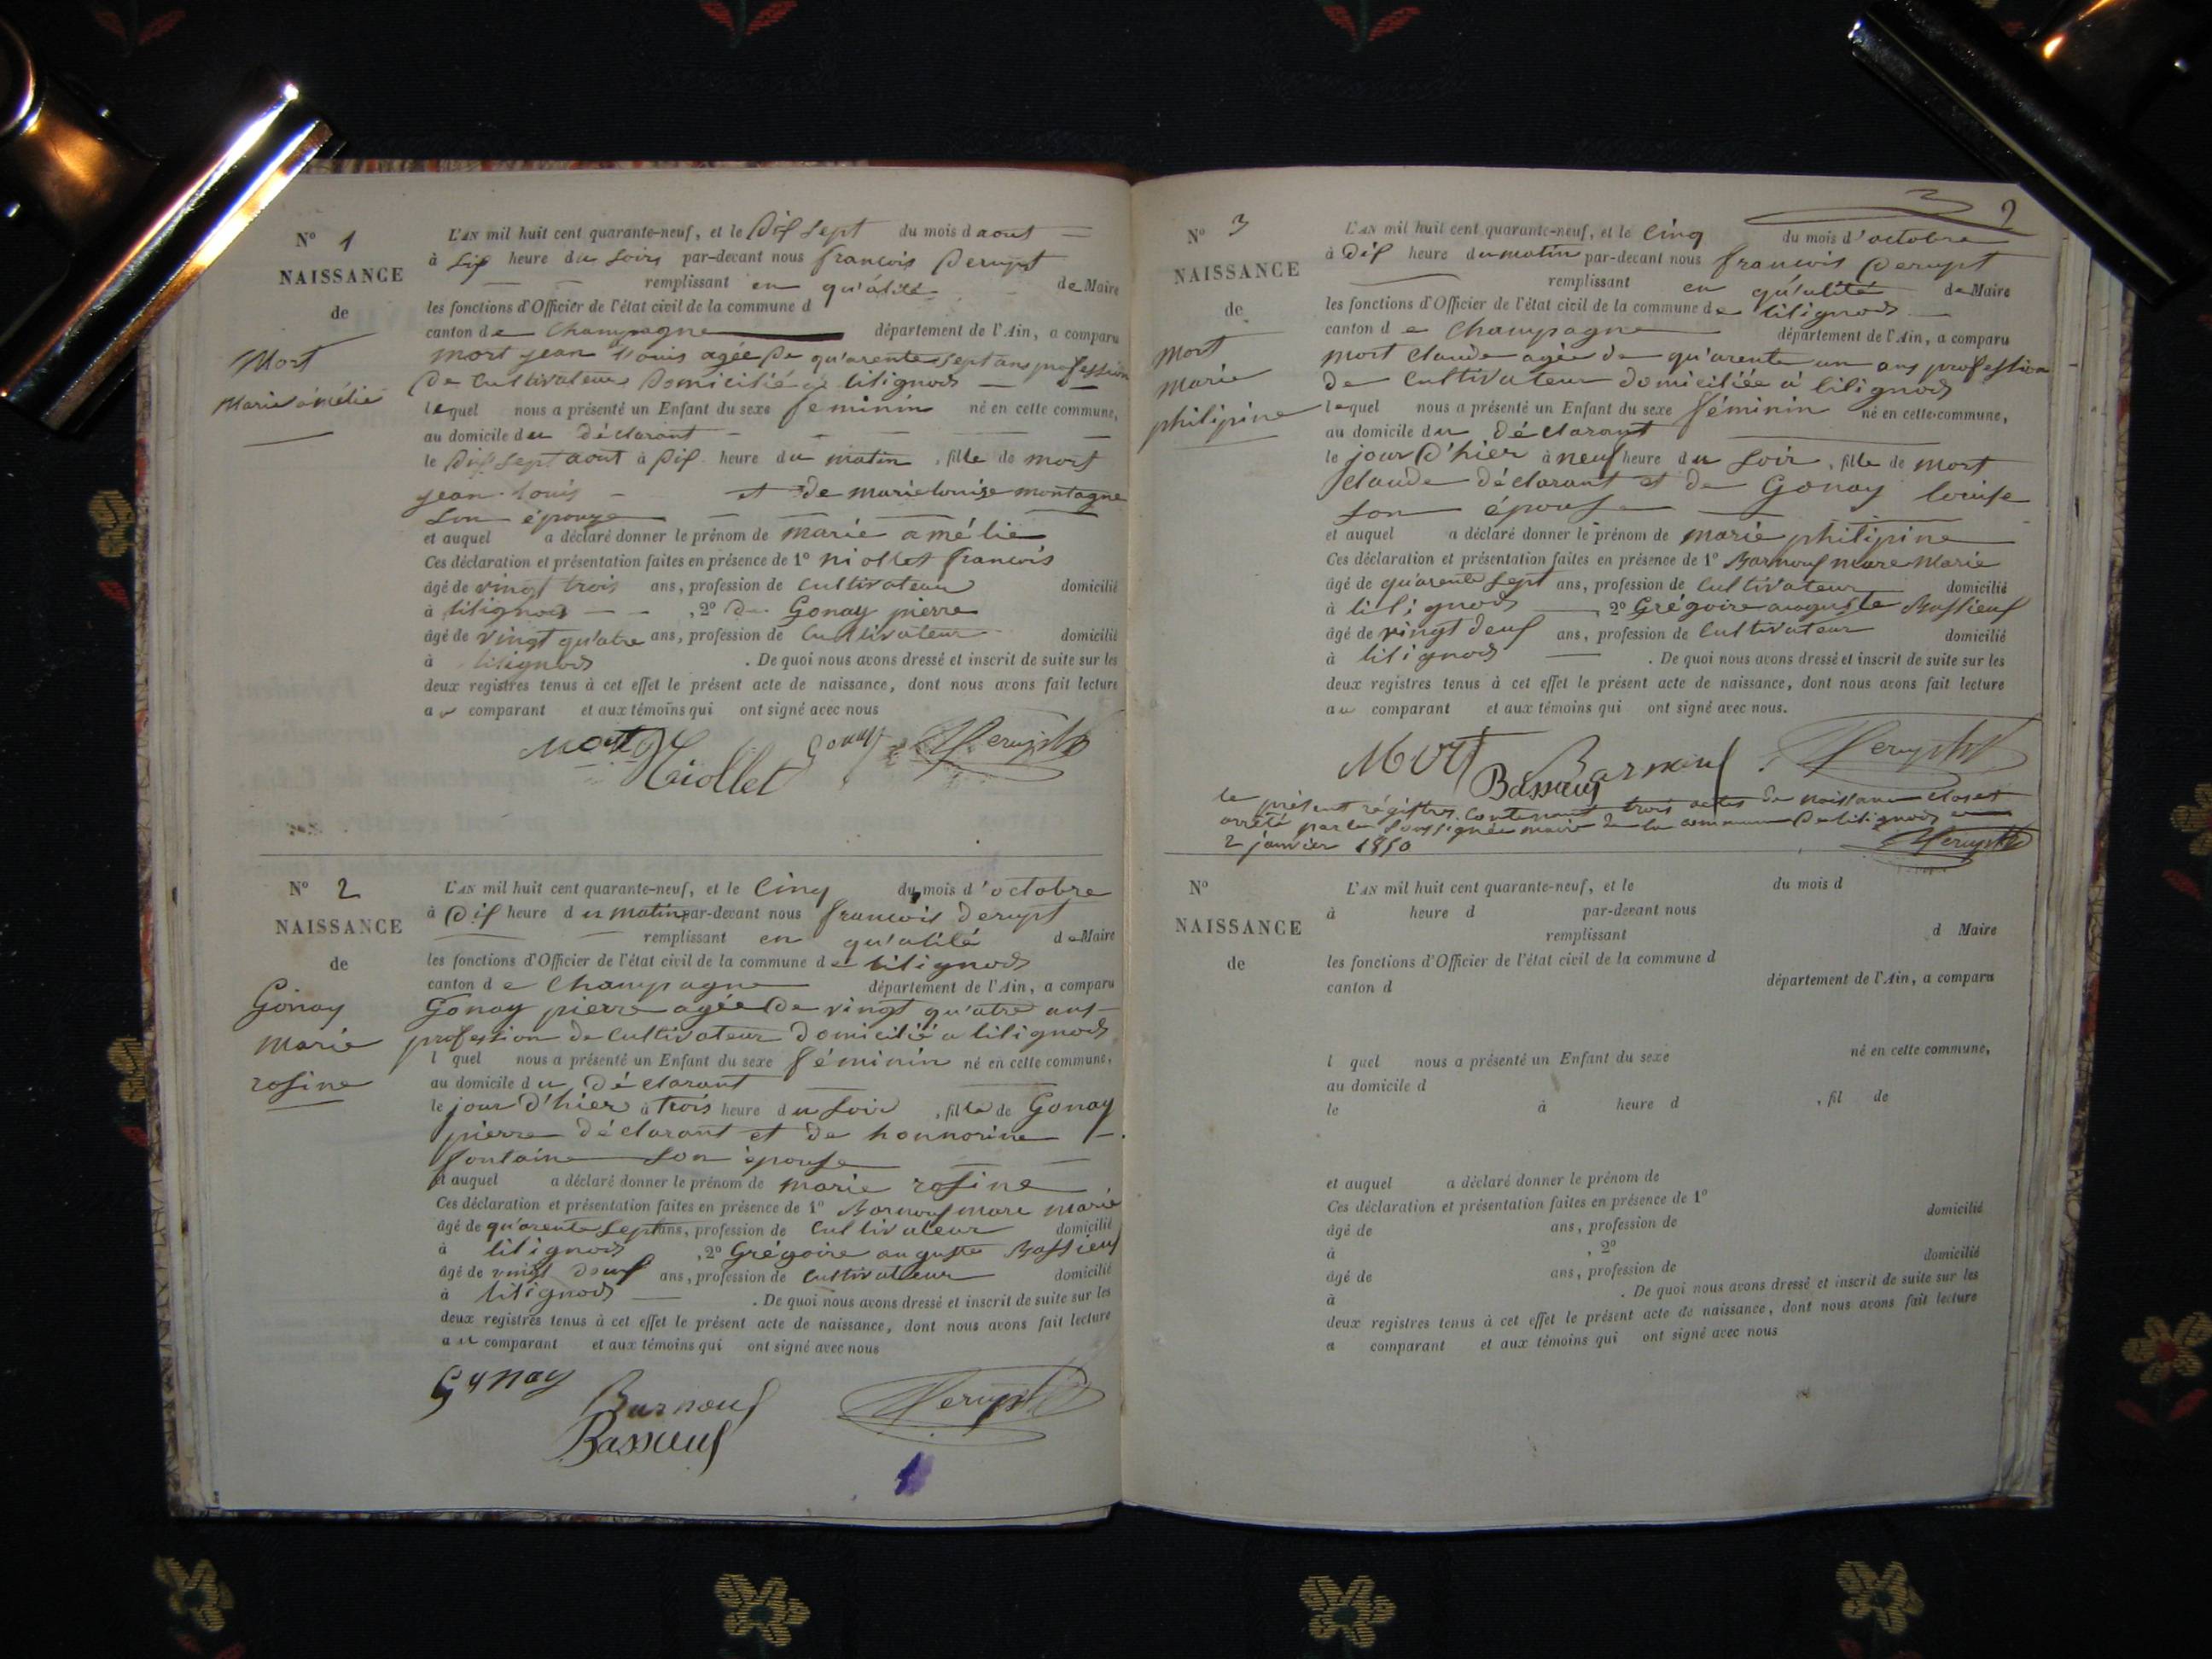 N° 1
NAISSANCE
de
Mort
Marie amélie
L'AN mil huit cent quarante-neuf, et le Dix sept du mois d aout
à Six heure du Soirs par-devant nous françois Derupt
remplissant en qu'alité de Maire
les fonctions d'Officier de l'état civil de la commune d
canton de Champagne département de l'Ain, a comparu
mort jean Louis agée De qu'arente sept ans profession
De Cultivateur Domicilié a lilignods
lequel nous a présenté un Enfant du sexe féminin né en cette commune,
au domicile du déclarant
le Dix sept aout à Dix heure du matin , fille de mort
jean Louis et de marie louise montagne
Son épouze
et auquel a déclaré donner le prénom de marie amélie
Ces déclaration et présentation faites en présence de 1° niollet françois
âgé de vingt trois ans, profession de Cultivateur domicilié
à lilignods , 2° De Gonay pierre
âgé de vingt qu'atre ans, profession de Cultivateur domicilié
à lilignods . De quoi nous avons dressé et inscrit de suite sur les
deux registres tenus à cet effet le présent acte de naissance, dont nous avons fait lecture
au comparant et aux témoins qui ont signé avec nous
Mort Niollet Gonay Derupt
N° 2
NAISSANCE
de
Gonay
Marie
rosine
L'AN mil huit cent quarante-neuf, et le Cinq du mois d'octobre
à Dix heure du matin par-devant nous françois Derupt
remplissant en qu'alité de Maire
les fonctions d'Officier de l'état civil de la commune de lilignods
canton de Champagne département de l'Ain, a comparu
Gonay pierre agée De vingt qu'atre ans
profession de Cultivateur Domicilié a lilignods
l quel nous a présenté un Enfant du sexe féminin né en cette commune,
au domicile du Déclarant
le jour D'hier à trois heure du Soir , fille de Gonay
pierre déclarant et de honnorine
fontaine son épouse
et auquel a déclaré donner le prénom de marie rosine
Ces déclaration et présentation faites en présence de 1° Barnoux marc marie
âgé de qu'arente sept ans, profession de Cultivateur domicilié
à lilignods , 2° Grégoire auguste Bassieux
âgé de vingt deux ans, profession de Cultivateur domicilié
à lilignods . De quoi nous avons dressé et inscrit de suite sur les
deux registres tenus à cet effet le présent acte de naissance, dont nous avons fait lecture
au comparant et aux témoins qui ont signé avec nous
Gonay Barnoux Derupt
Bassieux
2
N° 3
NAISSANCE
de
Mort
Marie
philipine
L'AN mil huit cent quarante-neuf, et le Cinq du mois d'octobre
à Dix heure du matin par-devant nous françois Derupt
remplissant en qu'alité de Maire
les fonctions d'Officier de l'état civil de la commune de lilignods
canton de Champagne département de l'Ain, a comparu
mort Claude agée de qu'arente un ans profession
de Cultivateur domiciliée a lilignods
lequel nous a présenté un Enfant du sexe féminin né en cette commune,
au domicile du déclarant
le jour D'hier à neuf heure du Soir , fille de mort
Claude déclarant et de Gonay louise
son épouse
et auquel a déclaré donner le prénom de marie philipine
Ces déclaration et présentation faites en présence de 1° Barnoux marc Marie
âgé de qu'arente sept ans, profession de Cultivateur domicilié
à lilignods , 2° Grégoire auguste Bassieux
âgé de vingt deux ans, profession de Cultivateur domicilié
à lilignods . De quoi nous avons dressé et inscrit de suite sur les
deux registres tenus à cet effet le présent acte de naissance, dont nous avons fait lecture
au comparant et aux témoins qui ont signé avec nous.
Mort Barnoux Derupt
Bassieux
le présent régistres Contenant trois actes de naissance closet
arrêté par le soussignée maire de la commune De lilignods
2 janvier 1850 Derupt
N°
NAISSANCE
de
L'AN mil huit cent quarante-neuf, et le du mois d
à heure d par-devant nous
remplissant d Maire
les fonctions d'Officier de l'état civil de la commune d
canton d département de l'Ain, a comparu
l quel nous a présenté un Enfant du sexe né en cette commune,
au domicile d
le à heure d , fil de
et auquel a déclaré donner le prénom de
Ces déclaration et présentation faites en présence de 1°
âgé de ans, profession de domicilié
à , 2°
âgé de ans, profession de domicilié
à . De quoi nous avons dressé et inscrit de suite sur les
deux registres tenus à cet effet le présent acte de naissance, dont nous avons fait lecture
a comparant et aux témoins qui ont signé avec nous